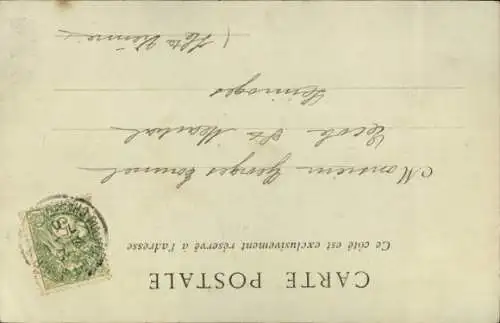 CARTE POSTALE
Ce côté est exclusivement réservé à l'adresse
Monsieur Georges
Ecole St Martial
Limoges
(Hte Vienne)